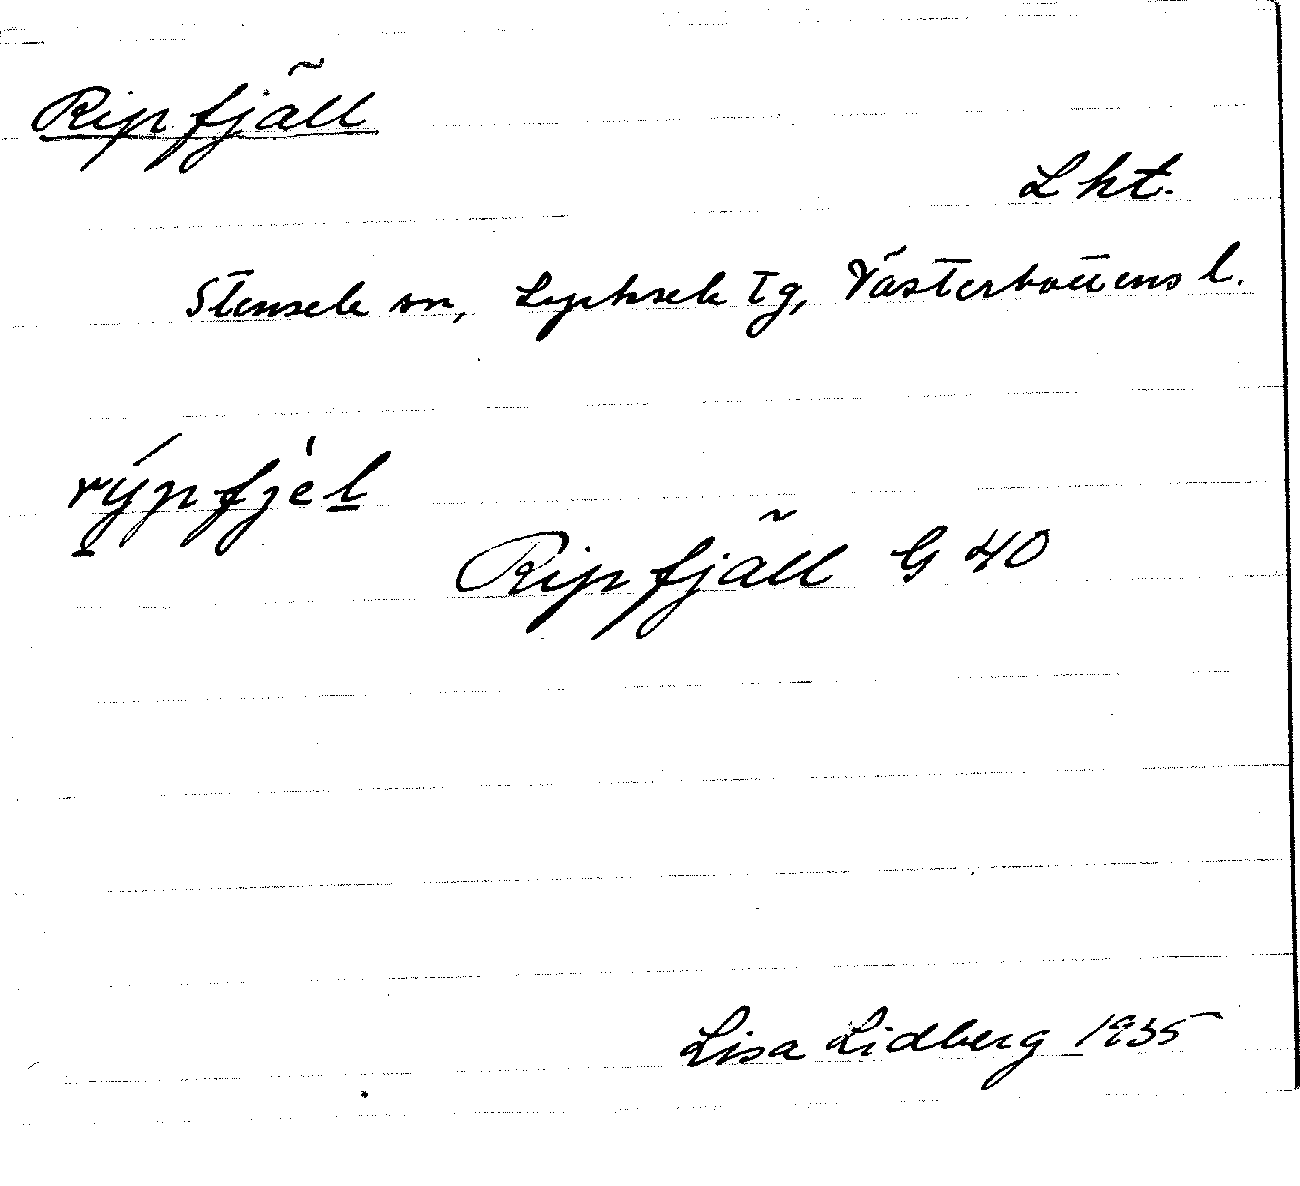 Ripfjäll
Lht.
Stensele sn, Lycksele tg, Västerbottens l.
rýpfjèl
Ripfjäll G 40
Lisa Lidberg 1935